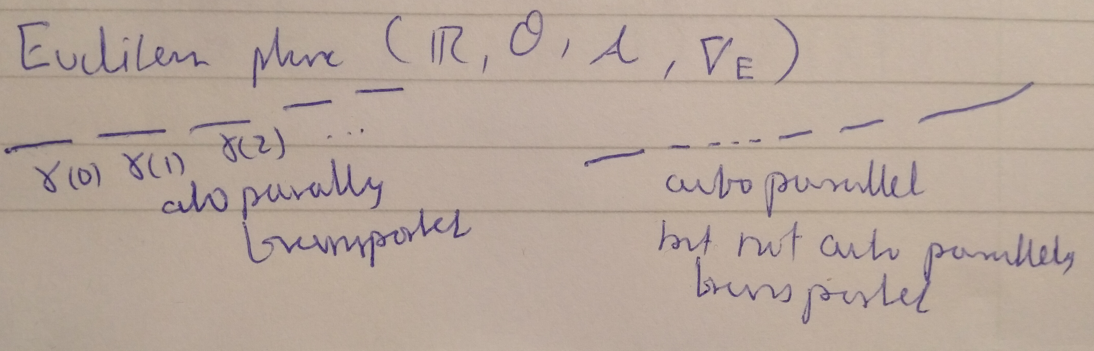 Euclilean plane (ℝ, O, A, ∇E)
γ(0) γ(1) γ(2) ...
auto parallely
transportet
auto parallel
but not auto parallely
transportet